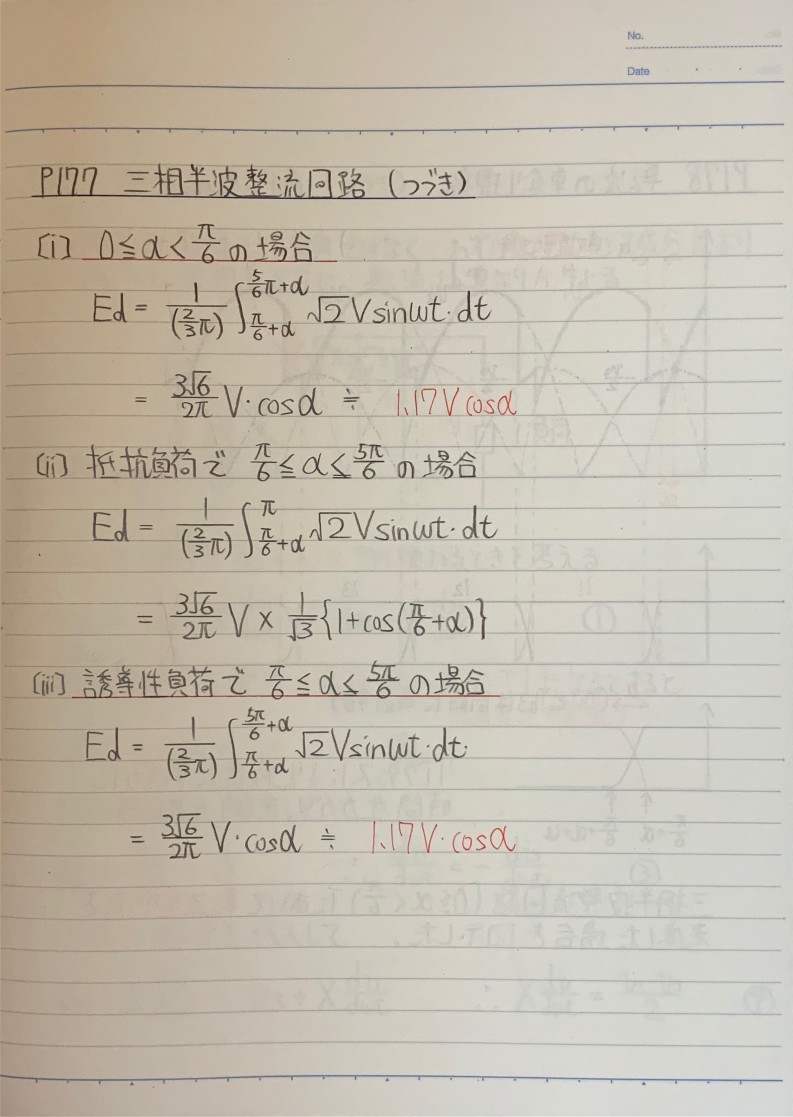 No.
Date
P177 三相半波整流回路 (つづき)
[i] 0≦α<π/6 の場合
Ed = 1/(2/3π) ∫_{π/6+α}^{5/6π+α} √2 V sinωt・dt
= 3√6/2π V・cosα ≒ 1.17V cosα
[ii] 抵抗負荷で π/6≦α≦5π/6 の場合
Ed = 1/(2/3π) ∫_{π/6+α}^{π} √2 V sinωt・dt
= 3√6/2π V × 1/√3 {1+cos(π/6+α)}
[iii] 誘導性負荷で π/6≦α≦5π/6 の場合
Ed = 1/(2/3π) ∫_{π/6+α}^{5π/6+α} √2 V sinωt・dt
= 3√6/2π V・cosα ≒ 1.17V・cosα